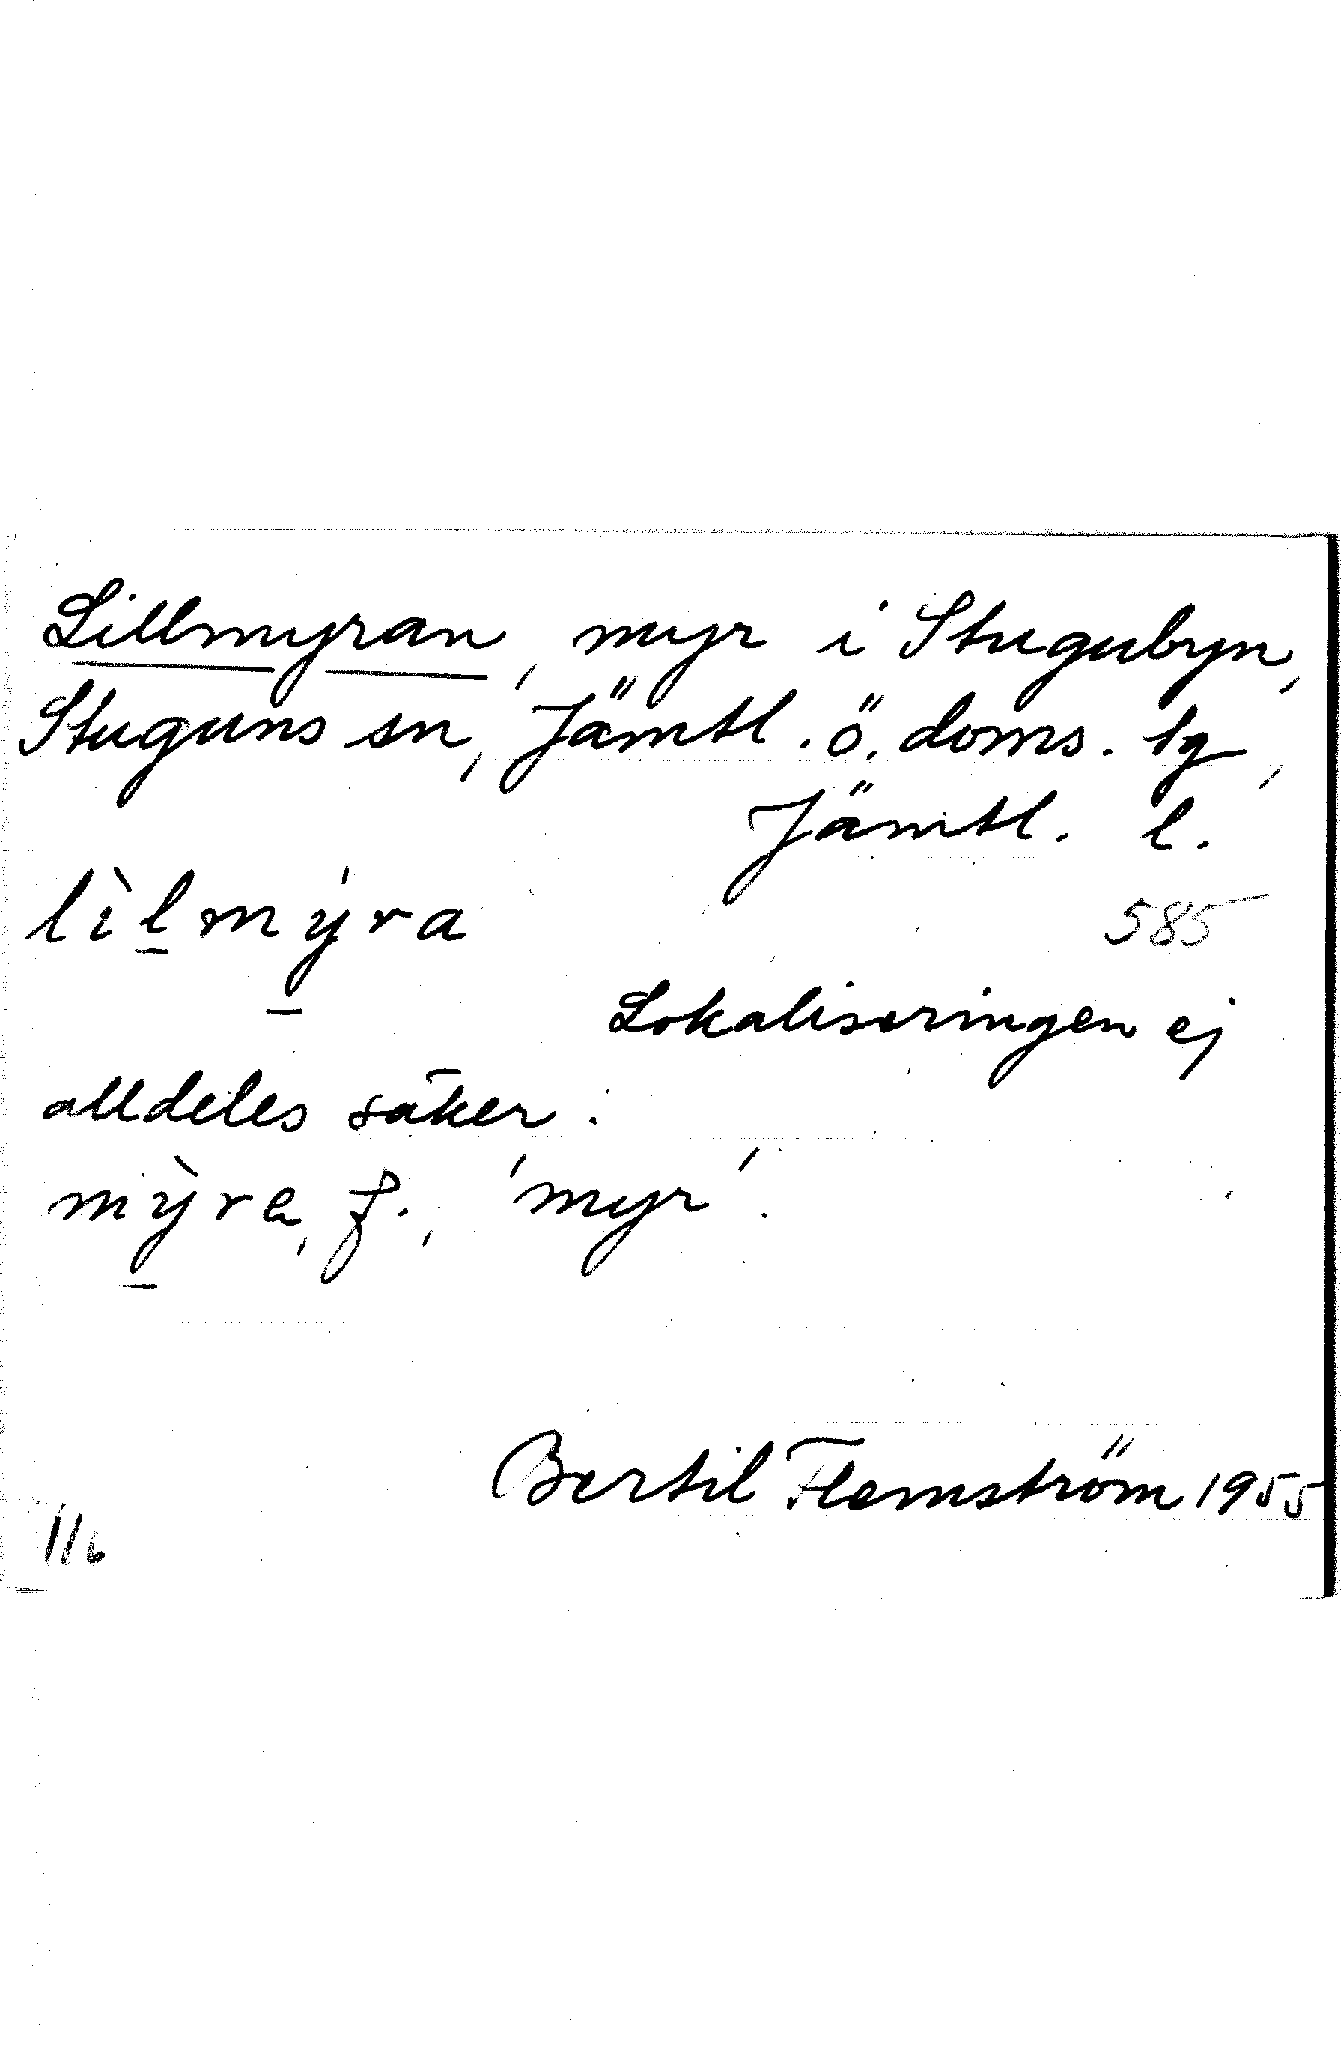 Lillmyran, myr i Stugubyn,
Stuguns sn, Jämtl. ö. doms. tg,
Jämtl. l.
lìl̠mý̠ra
585
Lokaliseringen ej
alldeles säker.
mỳ̠ra, f., 'myr'.
Bertil Flemström 1955
116